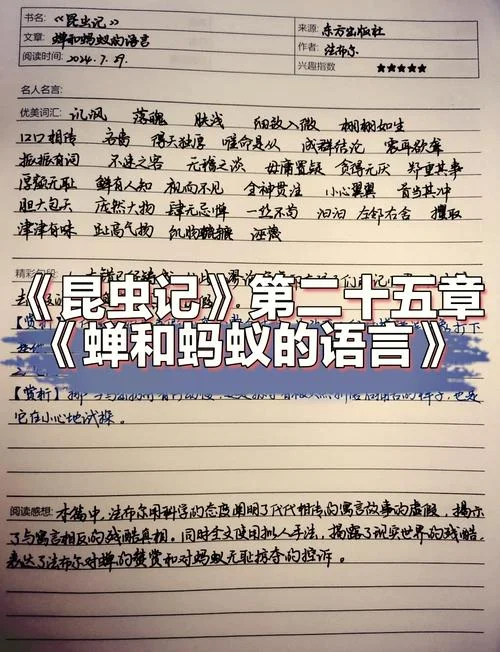 书名:《昆虫记》
来源: 东方出版社
文章: 蝉和蚂蚁的语言
作者: 法布尔
阅读时间: 2024.7.29.
兴趣指数 ★★★★★
名人名言:
优美词汇: 讥讽 落魄 肤浅 细致入微 栩栩如生
口口相传 名贵 得天独厚 唯命是从 成群结论 震耳欲聋
振振有词 不速之客 无稽之谈 毋庸置疑 贪得无厌 郑重其事
厚颜无耻 鲜有人知 视而不见 全神贯注 小心翼翼 首当其冲
胆大包天 庞然大物 肆无忌惮 一丝不苟 汩汩 左邻右舍 攫取
津津有味 趾高气扬 诬蔑
精彩句段:
《昆虫记》第二十五章
《蝉和蚂蚁的语言》
【赏析】
它在小心地试探。
阅读感想: 本篇中,法布尔用科学的态度阐明了代代相传的寓言故事的虚假,揭示
了与寓言相反的残酷真相。同时全文使用拟人手法,揭露了现实世界的残酷,
表达了法布尔对蝉的赞赏和对蚂蚁无耻掠夺的控诉。